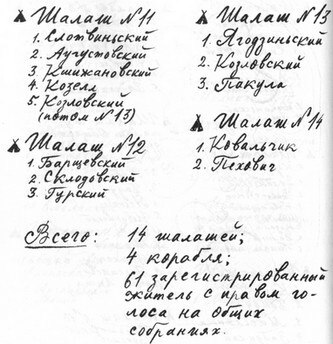 Шалаш №11
1. Слотвиньский
2. Аугустовский
3. Кшижановский
4. Козелл
5. Козловский
(потом №13)
Шалаш №12
1. Барщевский
2. Склодовский
3. Гурский
Шалаш №13
1. Ягодзиньский
2. Козловский
3. Пакула
Шалаш №14
1. Ковальчик
2. Пехович
Всего:
14 шалашей;
4 корабля;
61 зарегистрированный
житель с правом го-
лоса на общих
собраниях.